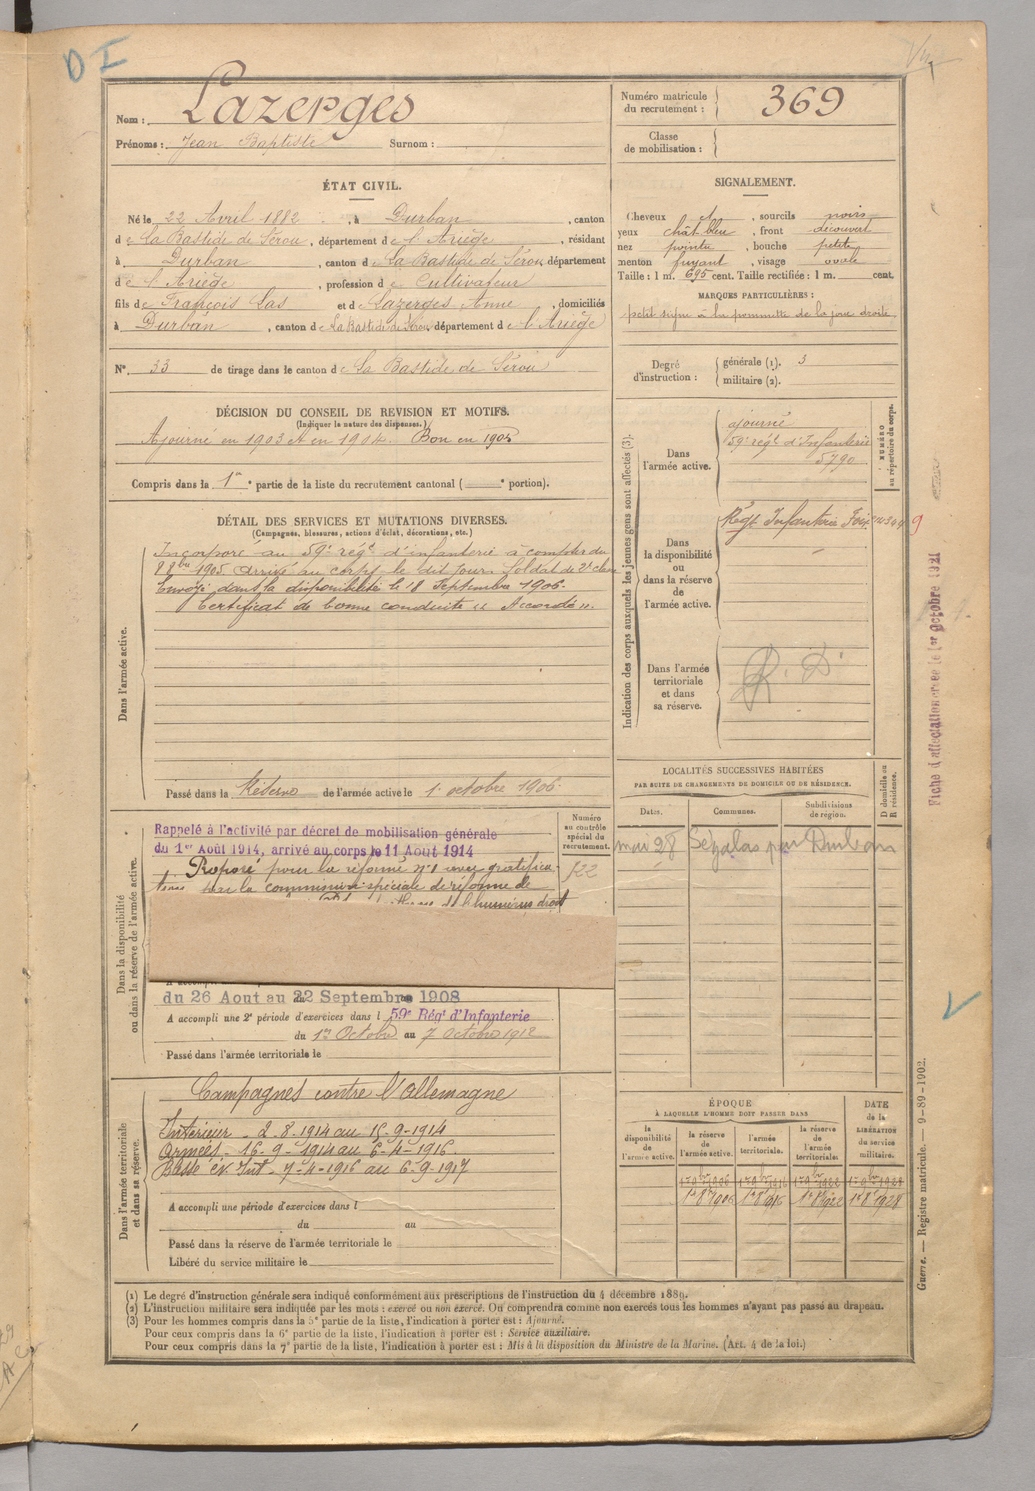 D I
Nom : Lazerges
Prénoms : Jean Baptiste Surnom :
Numéro matricule du recrutement : 369
Classe de mobilisation :
ÉTAT CIVIL.
Né le 22 Avril 1882, à Durban, canton
de La Bastide de Sérou, département de l'Ariège, résidant
à Durban, canton de La Bastide de Sérou département
de l'Ariège, profession de Cultivateur
fils de François Las et de Lazerges Anne, domiciliés
à Durban, canton de La Bastide de Sérou département de l'Ariège
N° 33 de tirage dans le canton de La Bastide de Sérou
SIGNALEMENT.
Cheveux et, sourcils noirs
yeux chât bleu, front découvert
nez pointu, bouche petite
menton fuyant, visage ovale
Taille : 1 m. 695 cent. Taille rectifiée : 1 m. cent.
MARQUES PARTICULIÈRES :
petit signe à la pommette de la joue droite
Degré d'instruction : générale (1). 3
militaire (2).
DÉCISION DU CONSEIL DE REVISION ET MOTIFS.
(Indiquer la nature des dispenses.)
Ajourné en 1903 et en 1904. Bon en 1905
Compris dans la 1re partie de la liste du recrutement cantonal ( e portion).
DÉTAIL DES SERVICES ET MUTATIONS DIVERSES.
(Campagnes, blessures, actions d'éclat, décorations, etc.)
Dans l'armée active.
Incorporé au 59e régt d'infanterie à compter du
8 8bre 1905 arrivé au corps le dit jour. Soldat de 2e classe
Envoyé dans la disponibilité le 18 Septembre 1906.
Certificat de bonne conduite " Accordé ".
Passé dans la Réserve de l'armée active le 1 octobre 1906.
Indication des corps auxquels les jeunes gens sont affectés (3).
NUMÉRO au répertoire du corps.
Dans l'armée active.
ajourné
59e régt d'Infanterie
5790
Dans la disponibilité ou dans la réserve de l'armée active.
Régt Infanterie Foix
Dans l'armée territoriale et dans sa réserve.
Fiche d'affectation créée le 1er Octobre 1921
Dans la disponibilité ou dans la réserve de l'armée active.
Numéro au contrôle spécial du recrutement.
522
Rappelé à l'activité par décret de mobilisation générale
du 1er Août 1914, arrivé au corps le 11 Août 1914
Proposé pour la réforme n°1 avec gratifica-
tion par la commission spéciale de réforme de
de l'humérus droit
du 26 Aout au 22 Septembre 1908
A accompli une 2e période d'exercices dans l 59e Régt d'Infanterie
du 1er Octobre au 7 octobre 1912
Passé dans l'armée territoriale le
LOCALITÉS SUCCESSIVES HABITÉES
PAR SUITE DE CHANGEMENTS DE DOMICILE OU DE RÉSIDENCE.
Dates. Communes. Subdivisions de region. D domicile ou R résidence.
mai 28 Ségalas par Durban
Dans l'armée territoriale et dans sa réserve.
Campagnes contre l'Allemagne
Intérieur - 2.8.1914 au 15-9-1914
Armées - 16-9-1914 au 6-4-1916
Int - 7-4-1916 au 6-9-1917
A accompli une période d'exercices dans l
du au
Passé dans la réserve de l'armée territoriale le
Libéré du service militaire le
ÉPOQUE
À LAQUELLE L'HOMME DOIT PASSER DANS
DATE de la LIBÉRATION du service militaire.
la disponibilité de l'armée active. la réserve de l'armée active. l'armée territoriale. la réserve de l'armée territoriale.
1er 8re 1906 1er 8re 1916 1er 8re 1922 1er 8re 1928
Guerre. — Registre matricule. — 9-89-1902.
(1) Le degré d'instruction générale sera indiqué conformément aux prescriptions de l'instruction du 4 décembre 1889.
(2) L'instruction militaire sera indiquée par les mots : exercé ou non exercé. On comprendra comme non exercés tous les hommes n'ayant pas passé au drapeau.
(3) Pour les hommes compris dans la 5e partie de la liste, l'indication à porter est : Ajourné.
Pour ceux compris dans la 6e partie de la liste, l'indication à porter est : Service auxiliaire.
Pour ceux compris dans la 7e partie de la liste, l'indication à porter est : Mis à la disposition du Ministre de la Marine. (Art. 4 de la loi.)